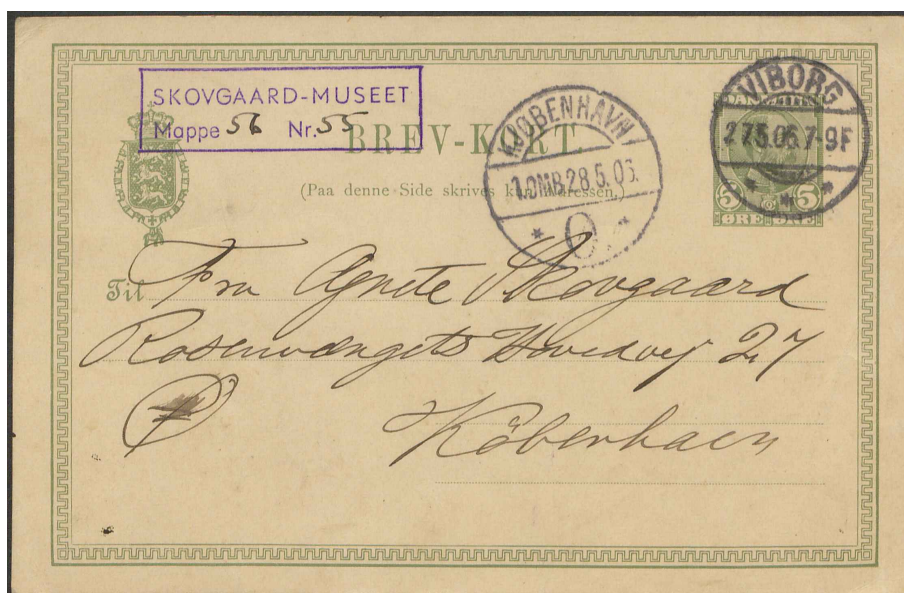 SKOVGAARD-MUSEET
Mappe 56 Nr. 55
BREV-KORT
(Paa denne Side skrives kun Adressen.)
KJØBENHAVN
1.OMB. 28.5.05.
VIBORG
27.5.05.7-9F
DANMARK
5 5
ØRE ØRE
Til Fru Agnete Skovgaard
Rosenvængets Hovedvej 27
Köbenhavn